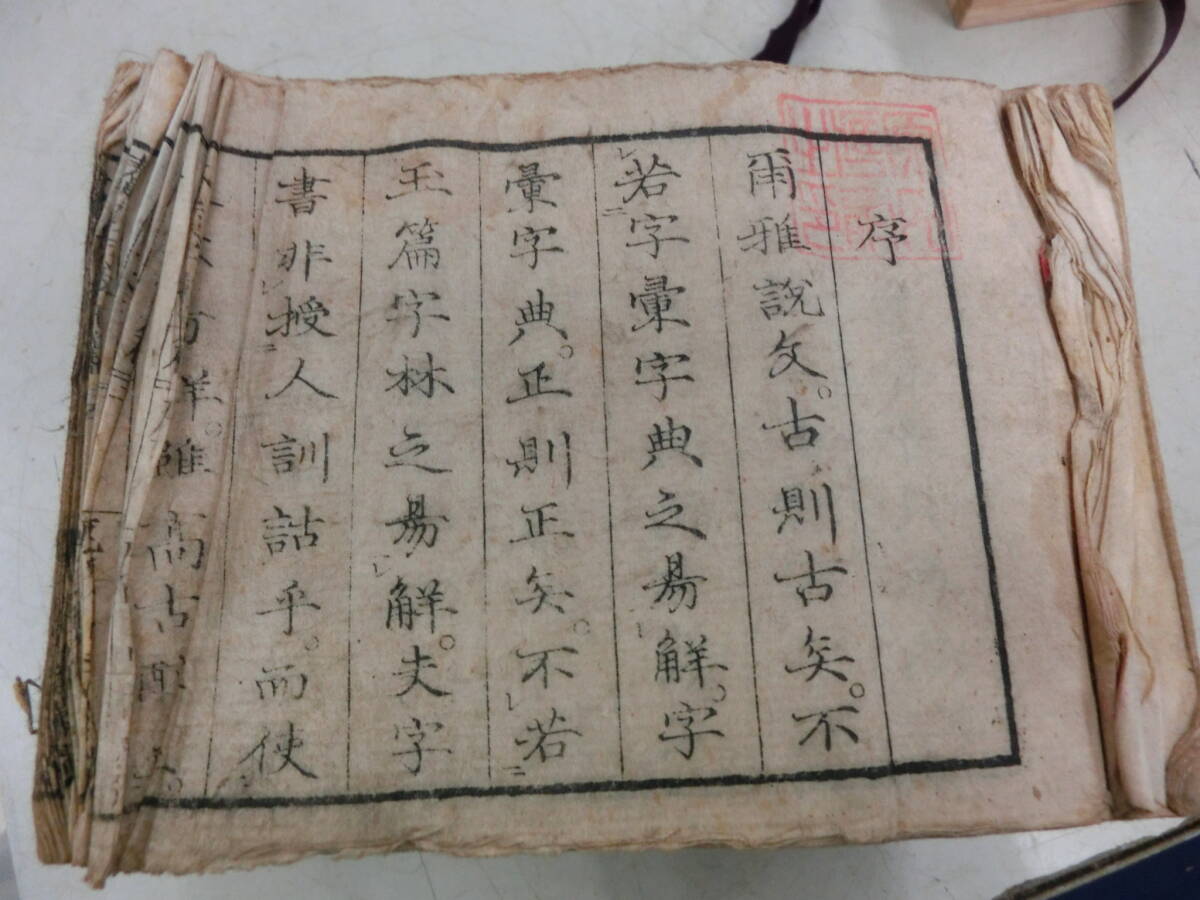 序
爾雅說文。古則古矣。不
若字彙字典之昜解。字
彙字典。正則正矣。不若
玉篇字林之昜解。夫字
書非授人訓詁乎。而使
詳。雖高古